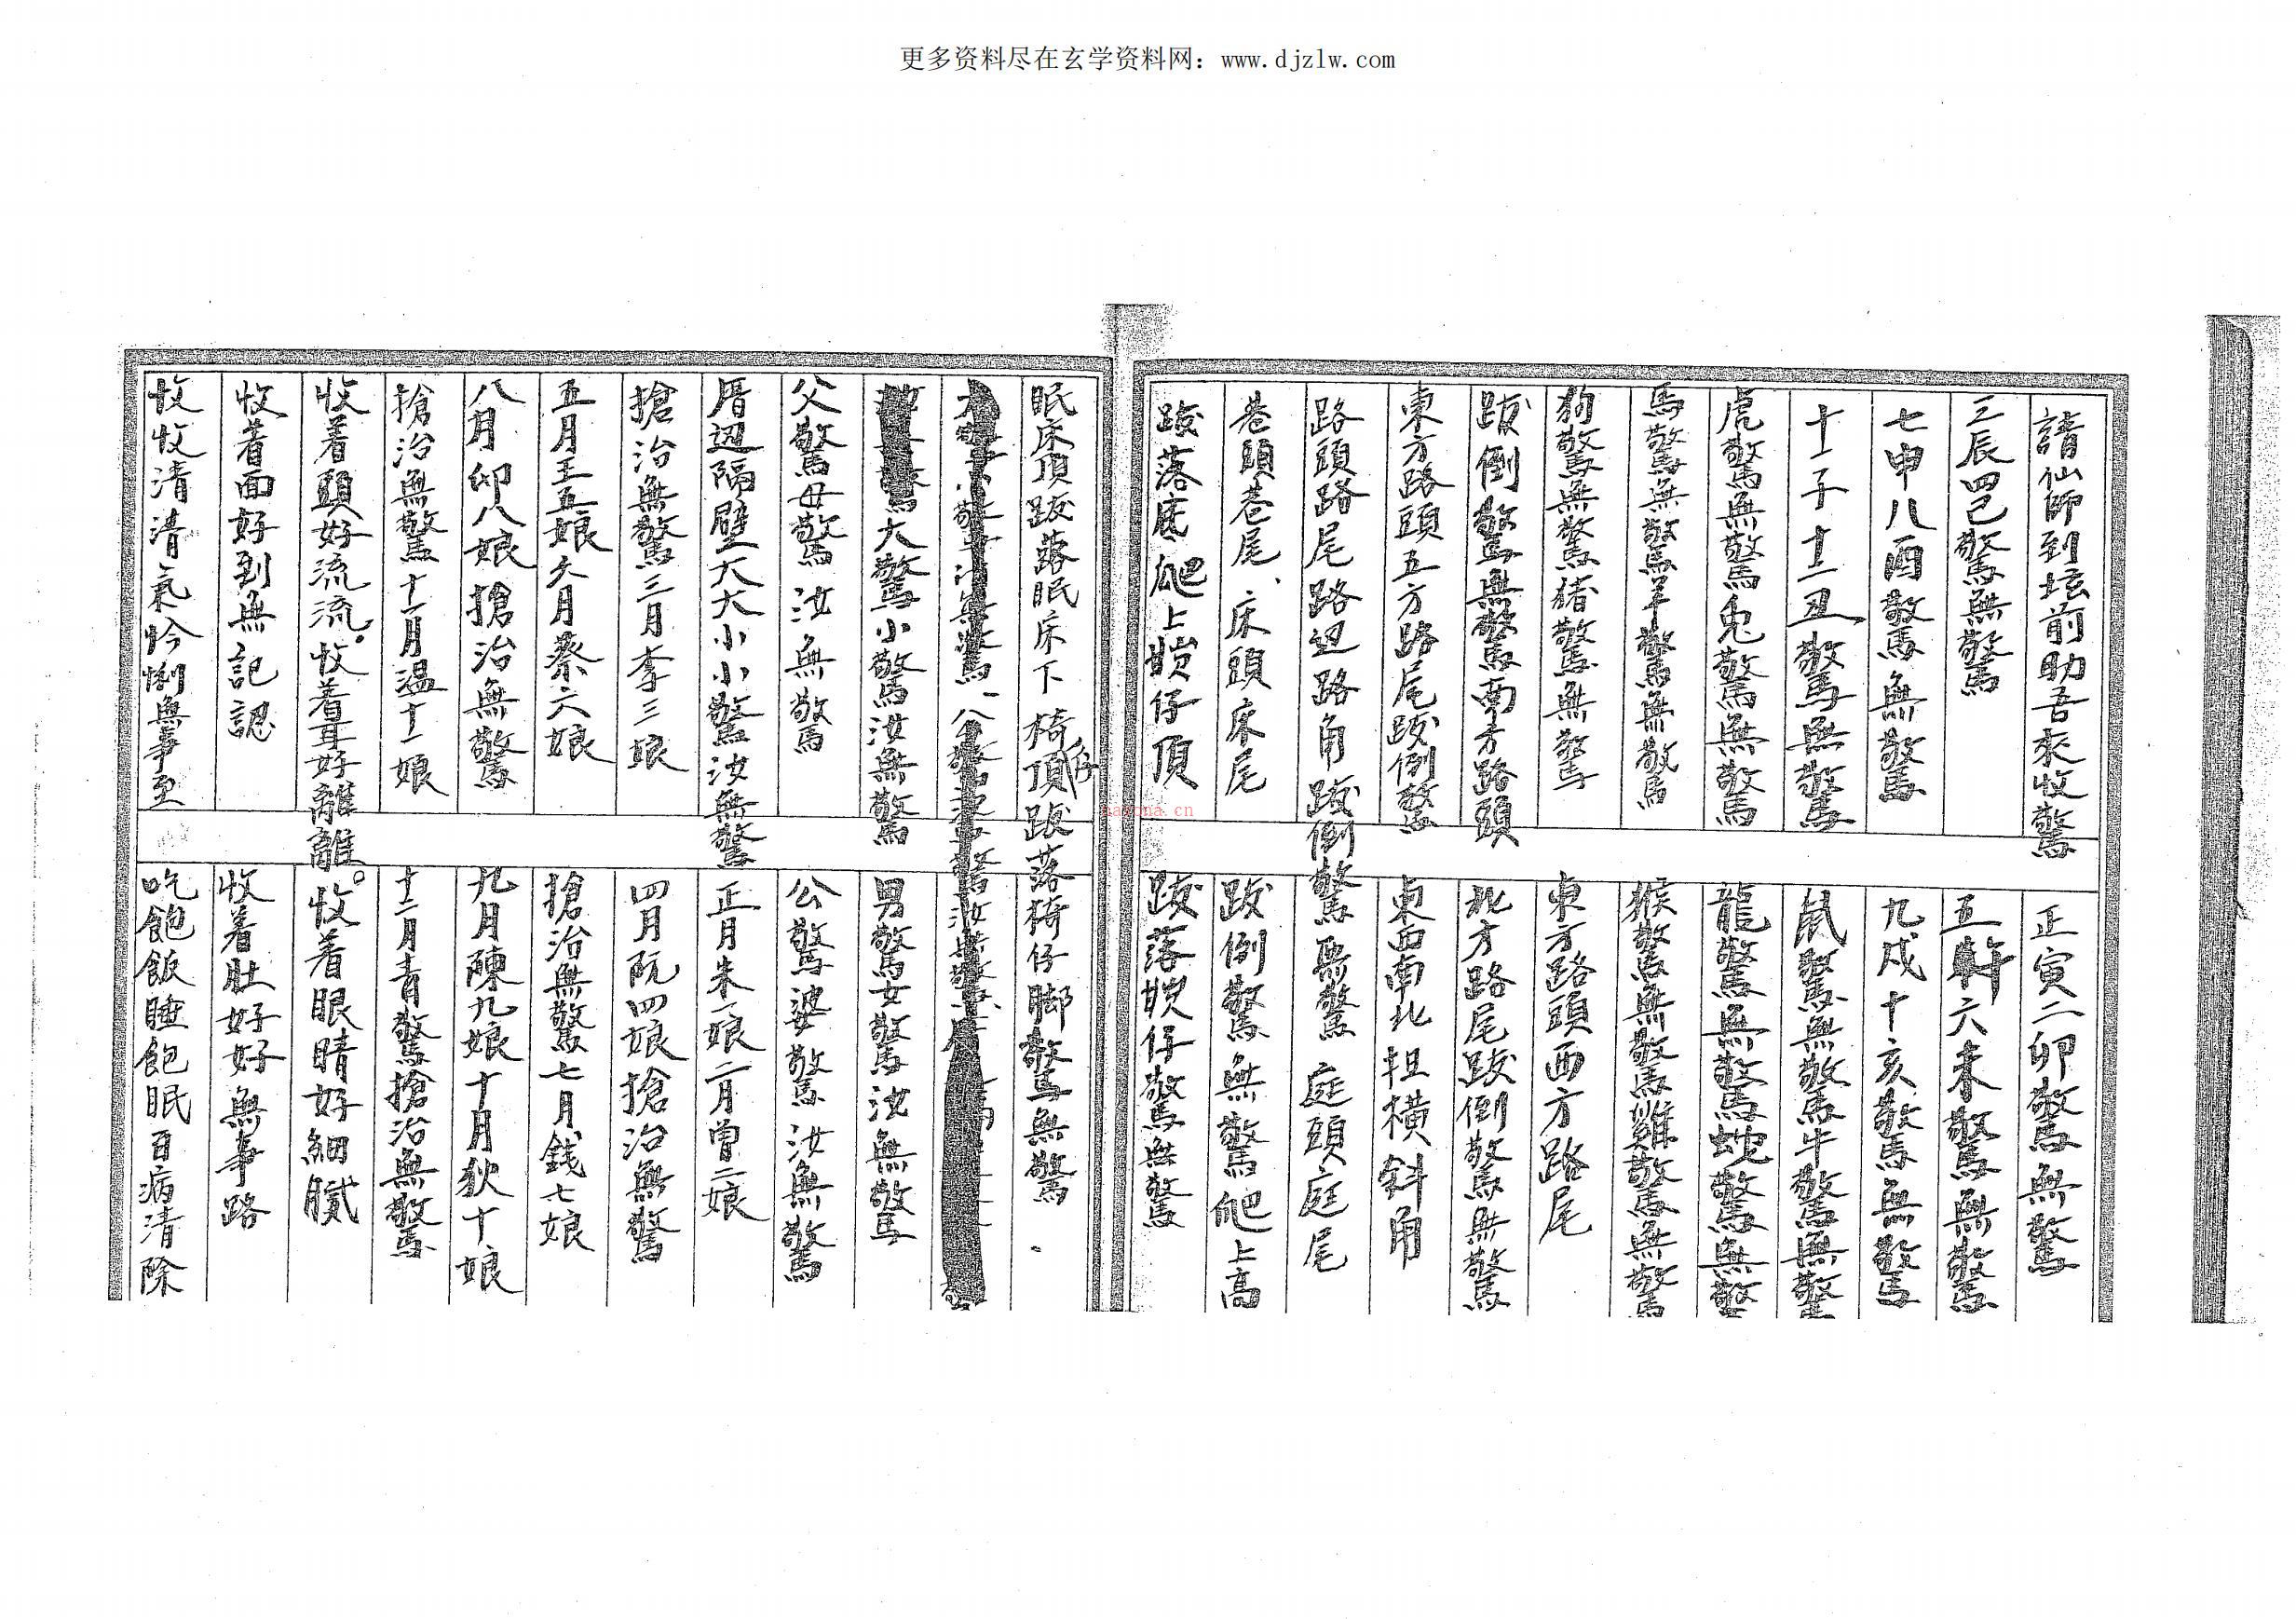 更多资料尽在玄学资料网：www.djzlw.com
請仙師到坛前助吾來收驚 正寅二卯驚無驚
三辰四巳驚無驚 五 六未驚無驚
七申八酉驚無驚 九戌十亥驚無驚
十一子十二丑驚無驚 鼠驚無驚牛驚無驚
虎驚無驚兎驚無驚 龍驚無驚蛇驚無驚
馬驚無驚羊驚無驚 猴驚無驚雞驚無驚
狗驚無驚猪驚無驚 東方路頭西方路尾
跋倒驚無驚南方路頭 北方路尾跋倒驚無驚
東方路頭五方路尾跋倒驚 東西南北担横斜角
路頭路尾路辺路角跋倒驚無驚 庭頭庭尾
巷頭巷尾、床頭床尾 跋倒驚無驚爬上高
跋落底爬上 仔頂 跋落 仔驚無驚
眠床頂跋落眠床下椅仔頂跋落椅仔脚驚無驚
大驚小驚汝無驚男驚女驚汝無驚
父驚母驚汝無驚 公驚婆驚汝無驚
厝辺隔壁大大小小驚汝無驚 正月朱一娘二月曽二娘
搶治無驚三月李三娘 四月阮四娘搶治無驚
五月王五娘六月蔡六娘 搶治無驚七月錢七娘
八月卯八娘搶治無驚 九月陳九娘十月狄十娘
搶治無驚十一月温十一娘 十二月青驚搶治無驚
收着頭好流流。收着耳好離離。收着眼睛好細膩
收着面好到無記認 收着肚好好無事路
收收清清氣怜悧無事至 吃飽飯睡飽眠百病清除
nayona.cn